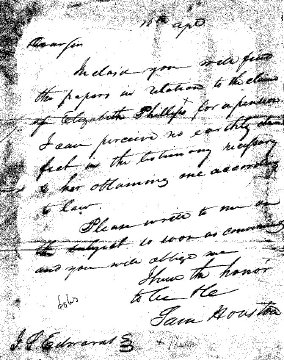 10th Apl
Dear Sir
Inclosed you will find
the papers in relation to the claim
of Elizabeth Phillips for a pension
I can perceive no earthly de
fect in the testimony necessary
to her obtaining one according
to law.
Please write to me on
the subject as soon as convenient
and you will oblige me
I have the honor
to be &c
Sam Houston
J. L. Edwards